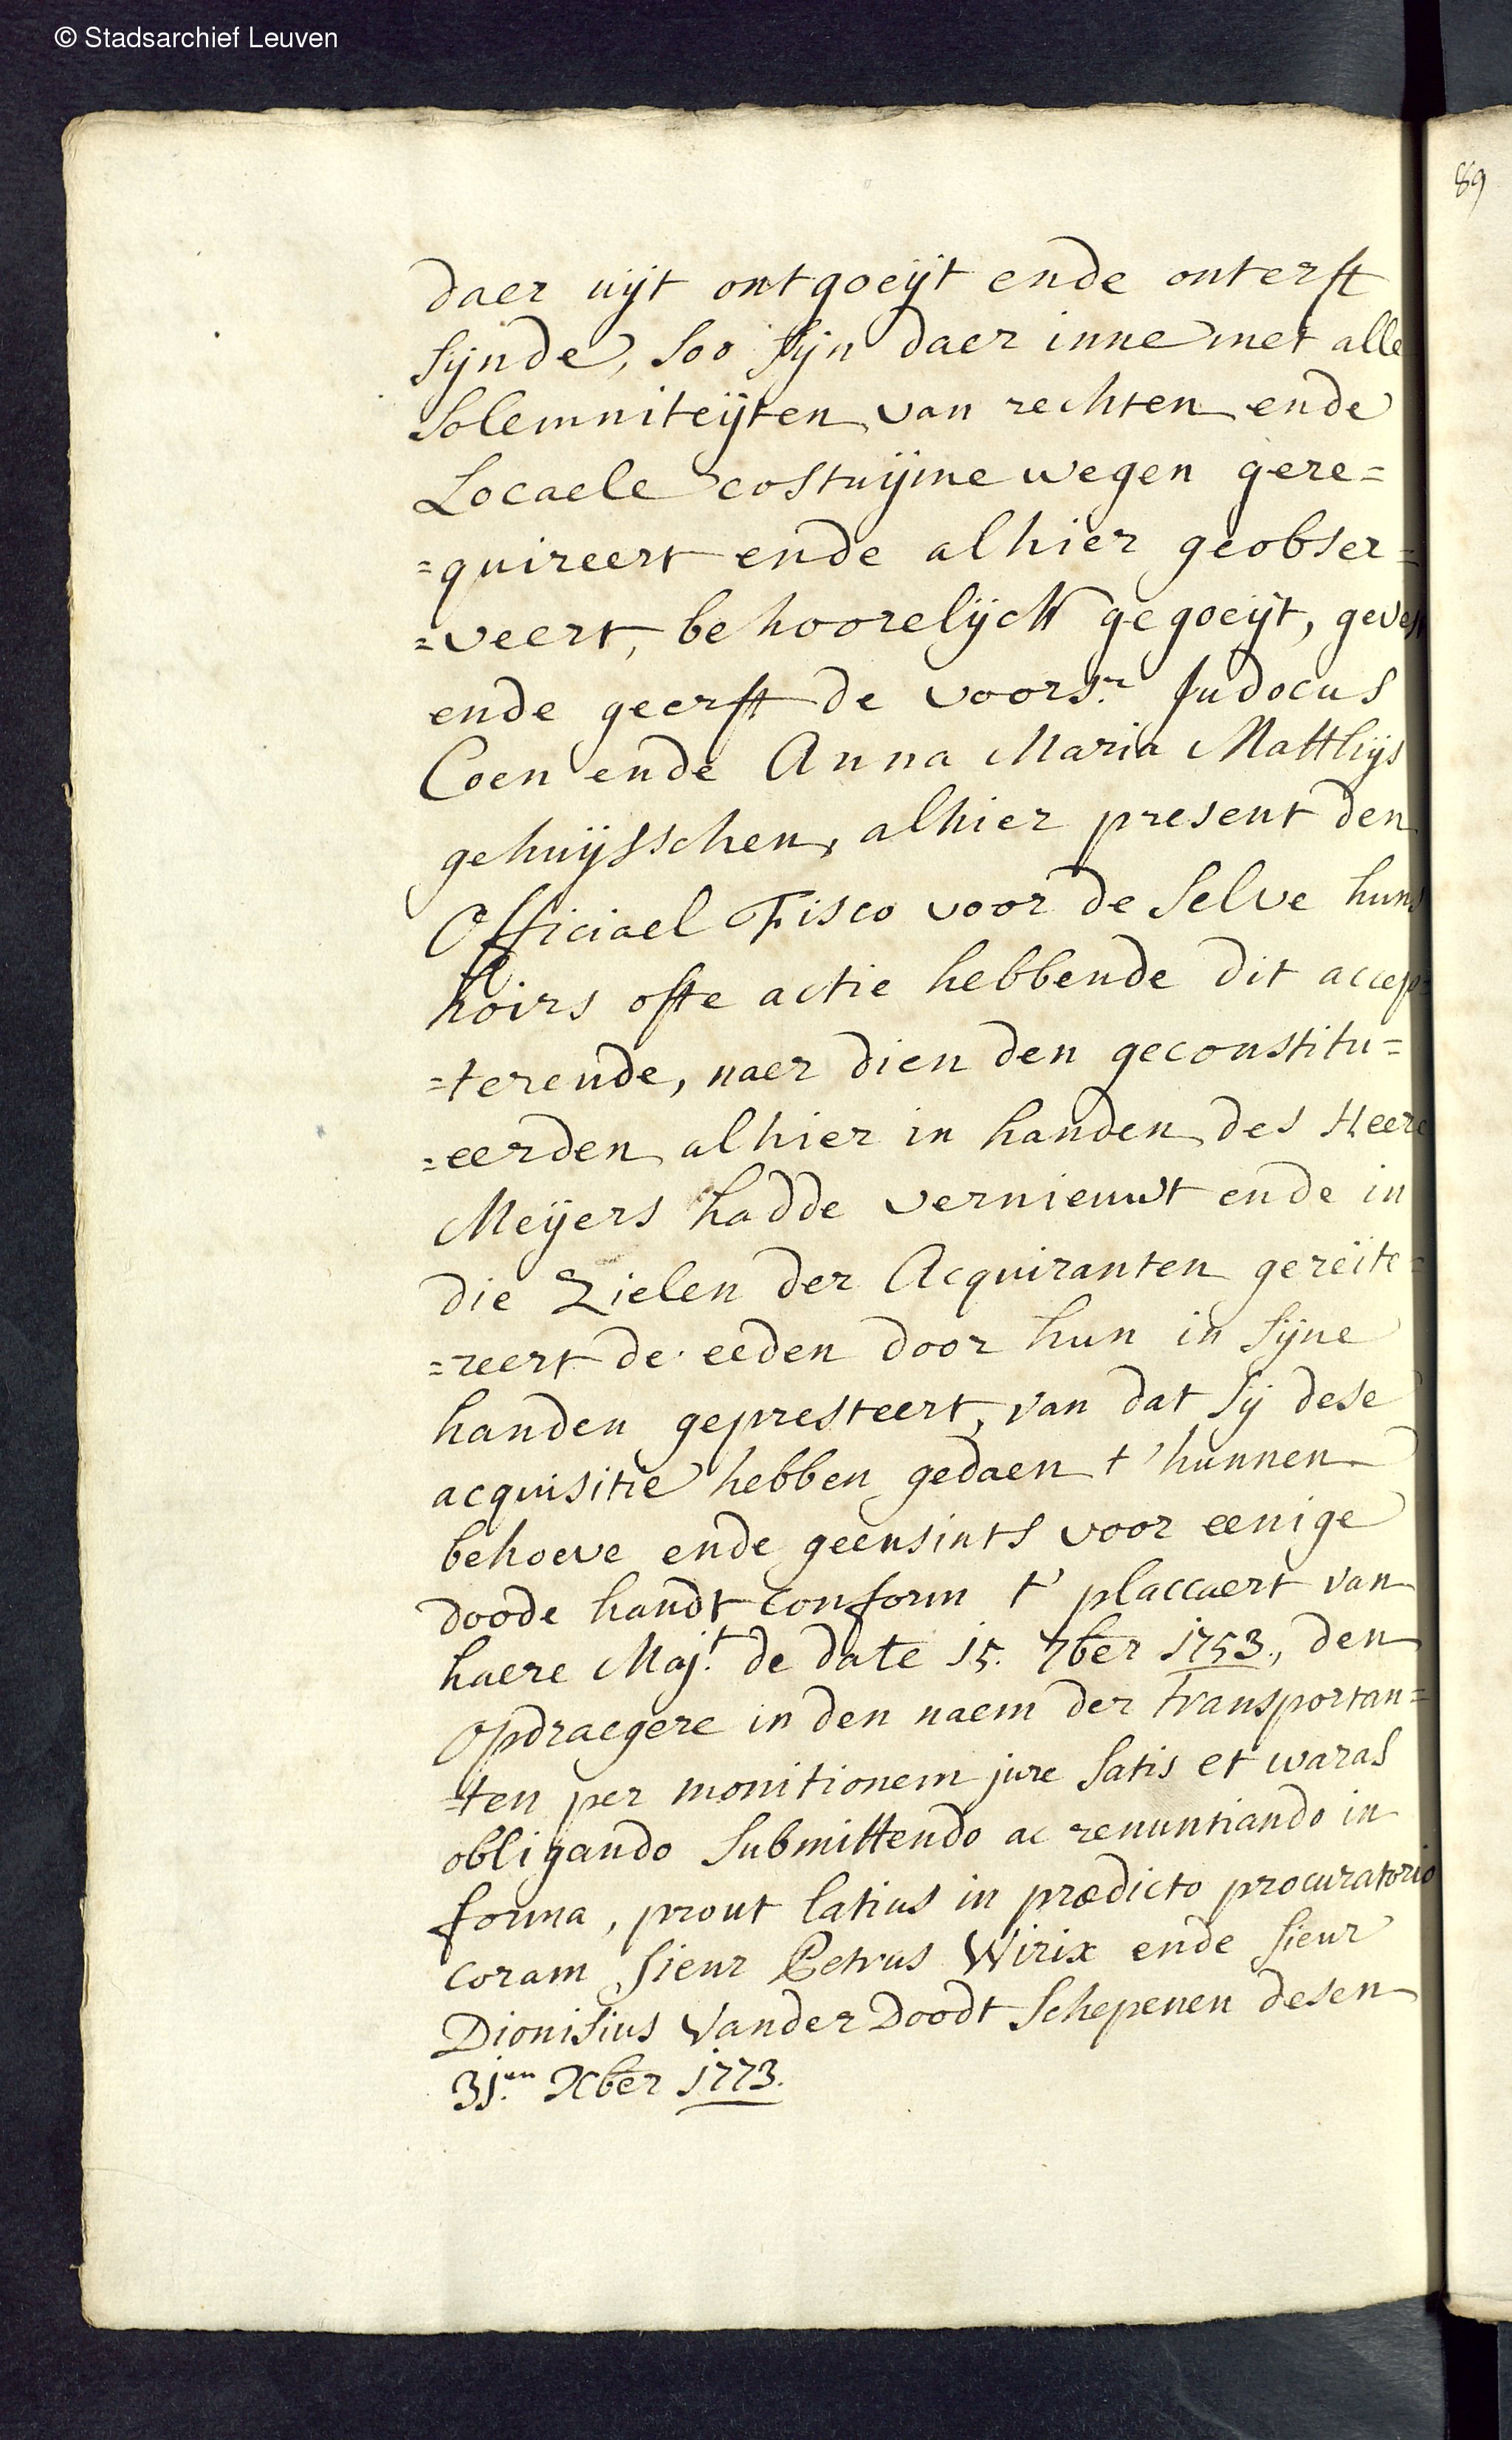 © Stadsarchief Leuven
89
daer uÿt ontgoeÿt ende onterft
sÿnde, soo sÿn daer inne met alle
solemniteÿten van rechten ende
Locaele costuÿme wegen gere=
=quireert ende alhier geobser=
=veert, behoorelÿck gegoeÿt, gevest
ende geerft de voors.n Judocus
Coen ende Anna Maria Matthÿs
gehuÿsschen, alhier present den
Officiael Fisco voor de selve huns
hoirs ofte actie hebbende dit accep=
=terende, naer dien den geconstitu=
=eerden alhier in handen des Heere
Meÿers hadde vernieuwt ende in
die Zielen der Acquiranten gereite=
=reert de eeden door hun in sÿne
handen gepresteert, van dat sÿ dese
acquisitie hebben gedaen t'hunnen
behoeve ende geensints voor eenige
doode handt conform t' placcaert van
haere Maj.t de date 15. 7ber 1753., den
opdraegere in den naem der transportan=
=ten per monitionem jure satis et waras
obligando submittendo ac renuntiando in
forma, prout latius in prædicto procuratorio
coram sieur Petrus Wirix ende sieur
Dionisius Vander Doodt schepenen desen
31.en Xber 1773.